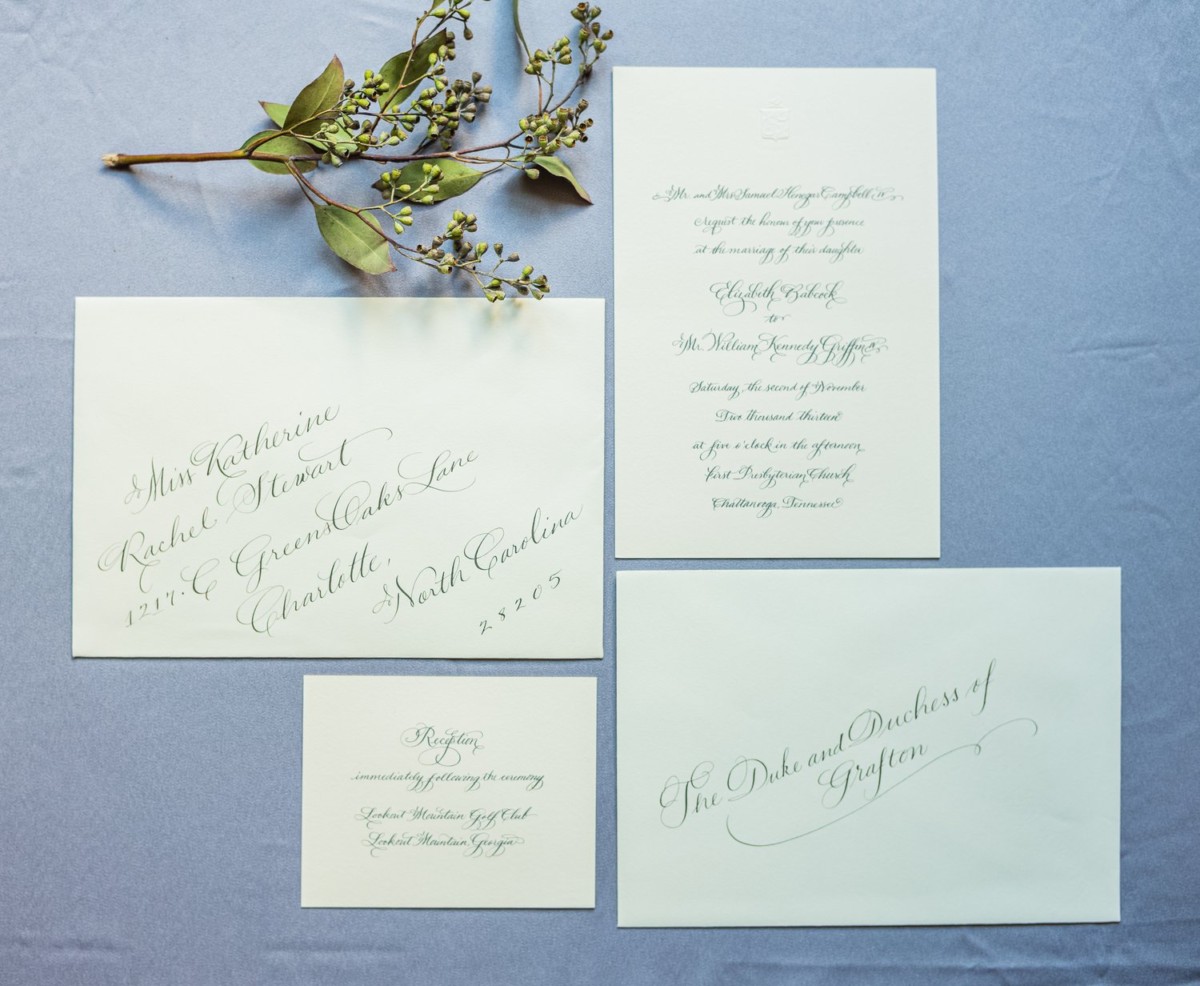 Mr. and Mrs. Samuel Henegar Campbell, IV
request the honour of your presence
at the marriage of their daughter
Elizabeth Babcock
to
Mr. William Kennedy Griffin
Saturday, the second of November
Two thousand thirteen
at five o'clock in the afternoon
First Presbyterian Church
Chattanooga, Tennessee
Miss Katherine
Rachel Stewart
1217·C Greens Oaks Lane
Charlotte,
North Carolina
28205
Reception
immediately following the ceremony
Lookout Mountain Golf Club
Lookout Mountain, Georgia
The Duke and Duchess of
Grafton